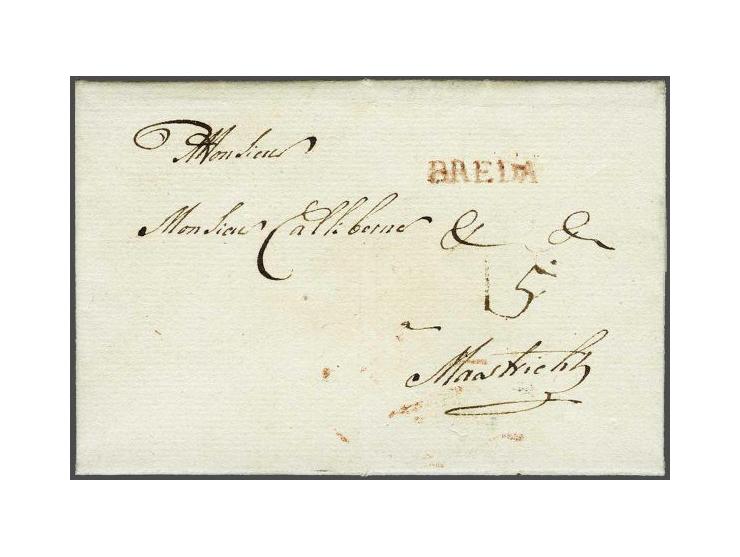 Monsieur
BREDA
Monsieur Calkberner & &
15
a
Maastricht